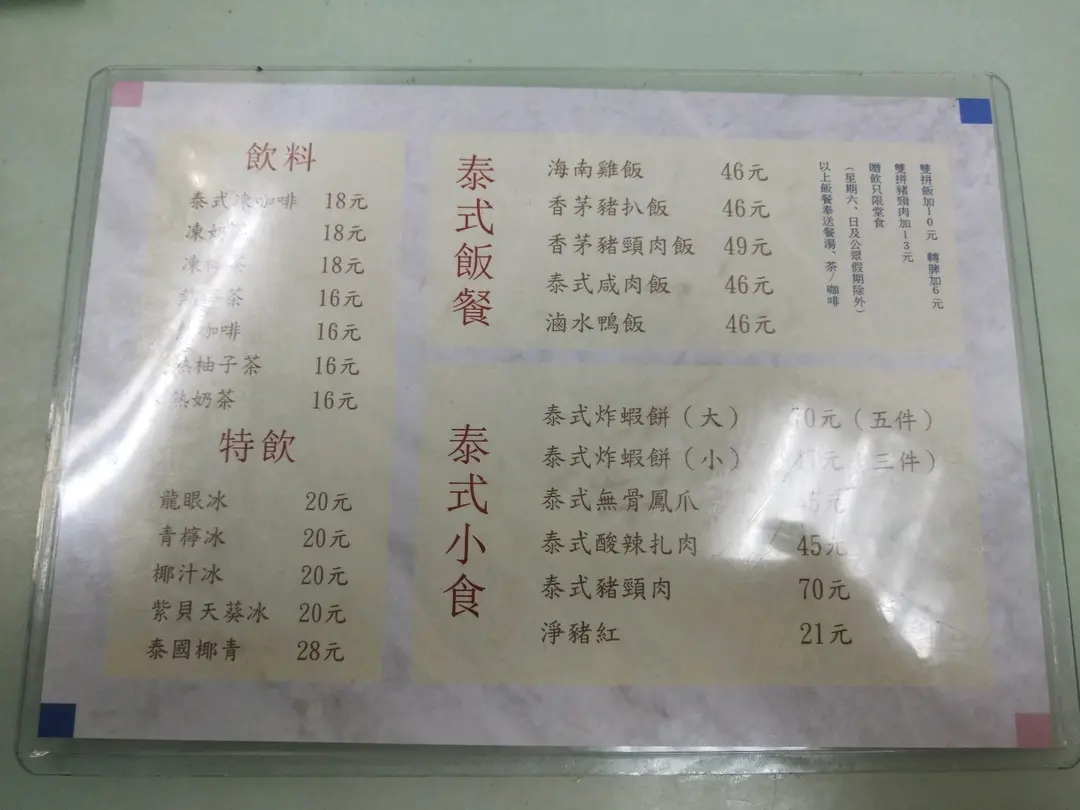 飲料
泰式凍咖啡 18元
凍奶 18元
凍 18元
茶 16元
咖啡 16元
熱柚子茶 16元
熱奶茶 16元
特飲
龍眼冰 20元
青檸冰 20元
椰汁冰 20元
紫貝天葵冰 20元
泰國椰青 28元
泰式飯餐
海南雞飯 46元
香茅豬扒飯 46元
香茅豬頸肉飯 49元
泰式咸肉飯 46元
滷水鴨飯 46元
雙拼飯加10元 轉脾加6元
雙拼豬頸肉加13元
贈飲只限堂食
(星期六、日及公眾假期除外)
以上飯餐奉送餐湯、茶/咖啡
泰式小食
泰式炸蝦餅(大) 70元(五件)
泰式炸蝦餅(小) 元(三件)
泰式無骨鳳爪 45元
泰式酸辣扎肉 45元
泰式豬頸肉 70元
淨豬紅 21元